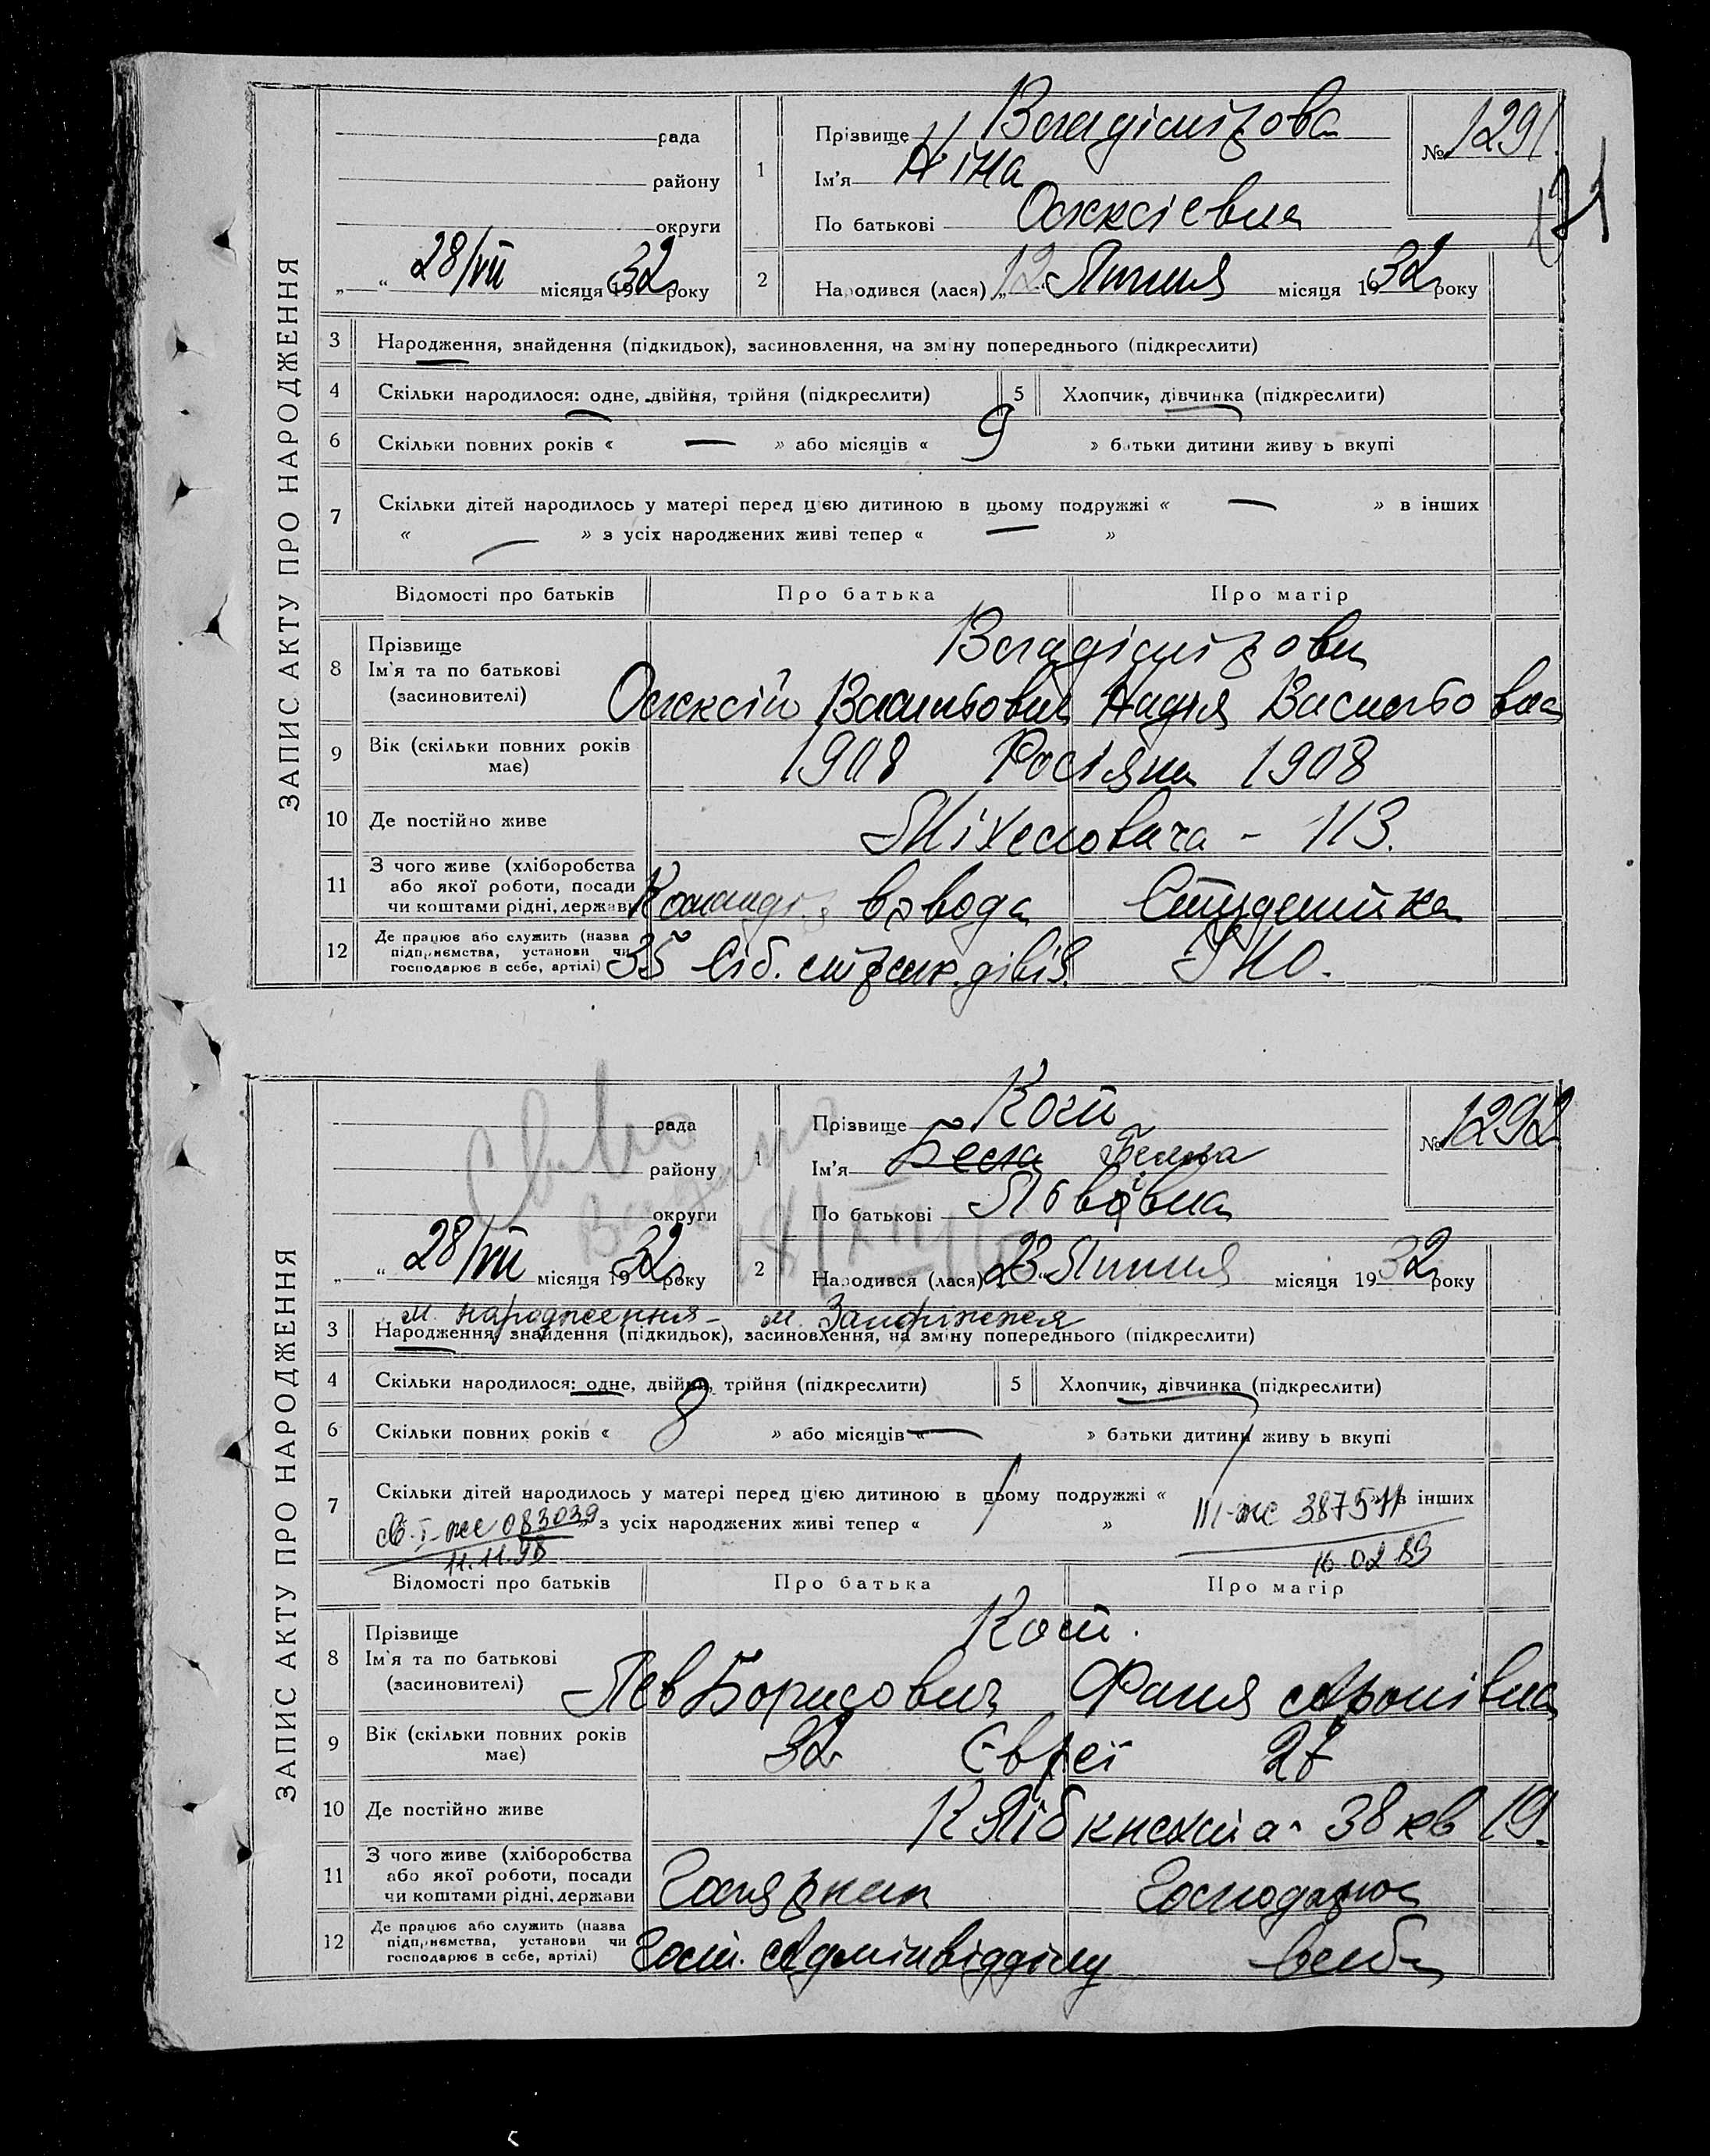 ЗАПИС АКТУ ПРО НАРОДЖЕННЯ
рада
району
округи
„ “ 28/VII місяця 1932 року
1 Прізвище Владімірова
Ім'я Ніна
По батькові Олексієвна
№ 1291
171
2 Народився (лася) „12“ Липня місяця 1932 року
3 Народження, знайдення (підкидьок), засиновлення, на зміну попереднього (підкреслити)
4 Скільки народилося: одне, двійня, трійня (підкреслити) 5 Хлопчик, дівчинка (підкреслити)
6 Скільки повних років « — » або місяців « 9 » батьки дитини живу ь вкупі
7 Скільки дітей народилось у матері перед цією дитиною в цьому подружжі « — » в інших
« — » з усіх народжених живі тепер « — »
Відомості про батьків Про батька Про матір
8 Прізвище Владімірови
Ім'я та по батькові
(засиновителі) Олексій Васильович Надія Васильовна
9 Вік (скільки повних років має) 1908 Росіяни 1908
10 Де постійно живе Міхеловича - 113.
11 З чого живе (хліборобства
або якої роботи, посади
чи коштами рідні, держави Командір взвода Студентка
12 Де працює або служить (назва
підприємства, установи чи
господарює в себе, артілі) 35 Сіб. стрелк. дівіз. ІНО.
ЗАПИС АКТУ ПРО НАРОДЖЕННЯ
рада
району
округи
„ “ 28/VII місяця 1932 року
1 Прізвище Кот
Ім'я Бела Белла
По батькові Львівна
№ 1292
2 Народився (лася) 23 Липня місяця 1932 року
м. народження - м. Запоріжжя
3 Народження, знайдення (підкидьок), засиновлення, на зміну попереднього (підкреслити)
4 Скільки народилося: одне, двійня, трійня (підкреслити) 5 Хлопчик, дівчинка (підкреслити)
6 Скільки повних років « 8 » або місяців « — » батьки дитини живу ь вкупі
7 Скільки дітей народилось у матері перед цією дитиною в цьому подружжі « 1 » в інших
» з усіх народжених живі тепер « 1 »
св. I-жс 083039
11.11.98
III-жс 387511
16.02.89
Відомості про батьків Про батька Про матір
8 Прізвище Кот.
Ім'я та по батькові
(засиновителі) Лев Борисович Фаня Аронівна
9 Вік (скільки повних років має) 32 Євреї 27
10 Де постійно живе К Лібкнехта - 38 кв 19.
11 З чого живе (хліборобства
або якої роботи, посади
чи коштами рідні, держави Господарює
12 Де працює або служить (назва
підприємства, установи чи
господарює в себе, артілі) Адмінвідділу в себе